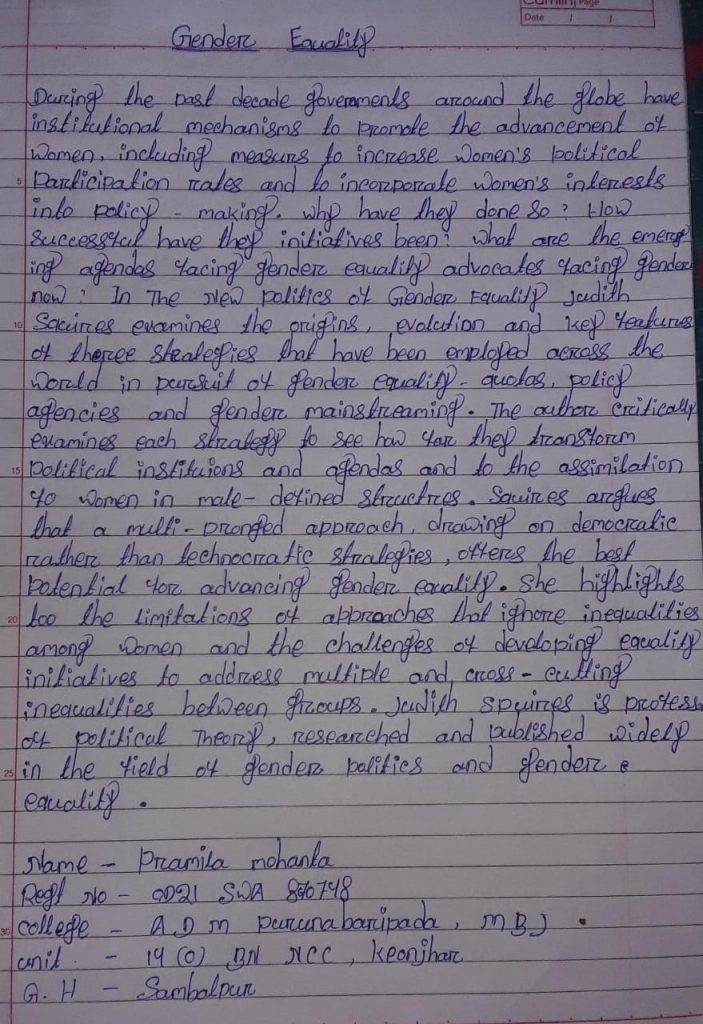 Cumin Page
Date / /
Gender Equality
During the past decade governments around the globe have
institutional mechanisms to promote the advancement of
women, including measurs to increase women's political
Participation rates and to incorporate women's interests
into policy - making. Why have they done so? How
successful have they initiatives been? What are the emerg
ing agendas facing gender equality advocates facing gender
now? In The New politics of Gender Equality Judith
Squires examines the origins, evolution and key features
of theree strategies that have been employed across the
world in pursuit of gender equality - quotas, policy
agencies and gender mainstreaming. The author critically
examines each strategy to see how far they transform
political instituions and agendas and to the assimilation
fo women in male - defined structres. Squires argues
that a multi - pronged approach, drawing on democratic
rather than technocratic strategies, offers the best
potential for advancing gender equality. She highlights
too the limitations of approaches that ignore inequalities
among women and the challenges of developing equality
initiatives to address multiple and cross - cutting
inequalities between groups. Judith Squires is profess
of political Theory, researched and published widely
in the field of gender politics and gender e
equality.
Name - Pramila mohanta
Regt No - OD21 SWA
college - A D M purunabaripada, MBJ
unit - 14 (O) BN NCC, Keonjhar
G. H - Sambalpur
5
10
15
20
25
30